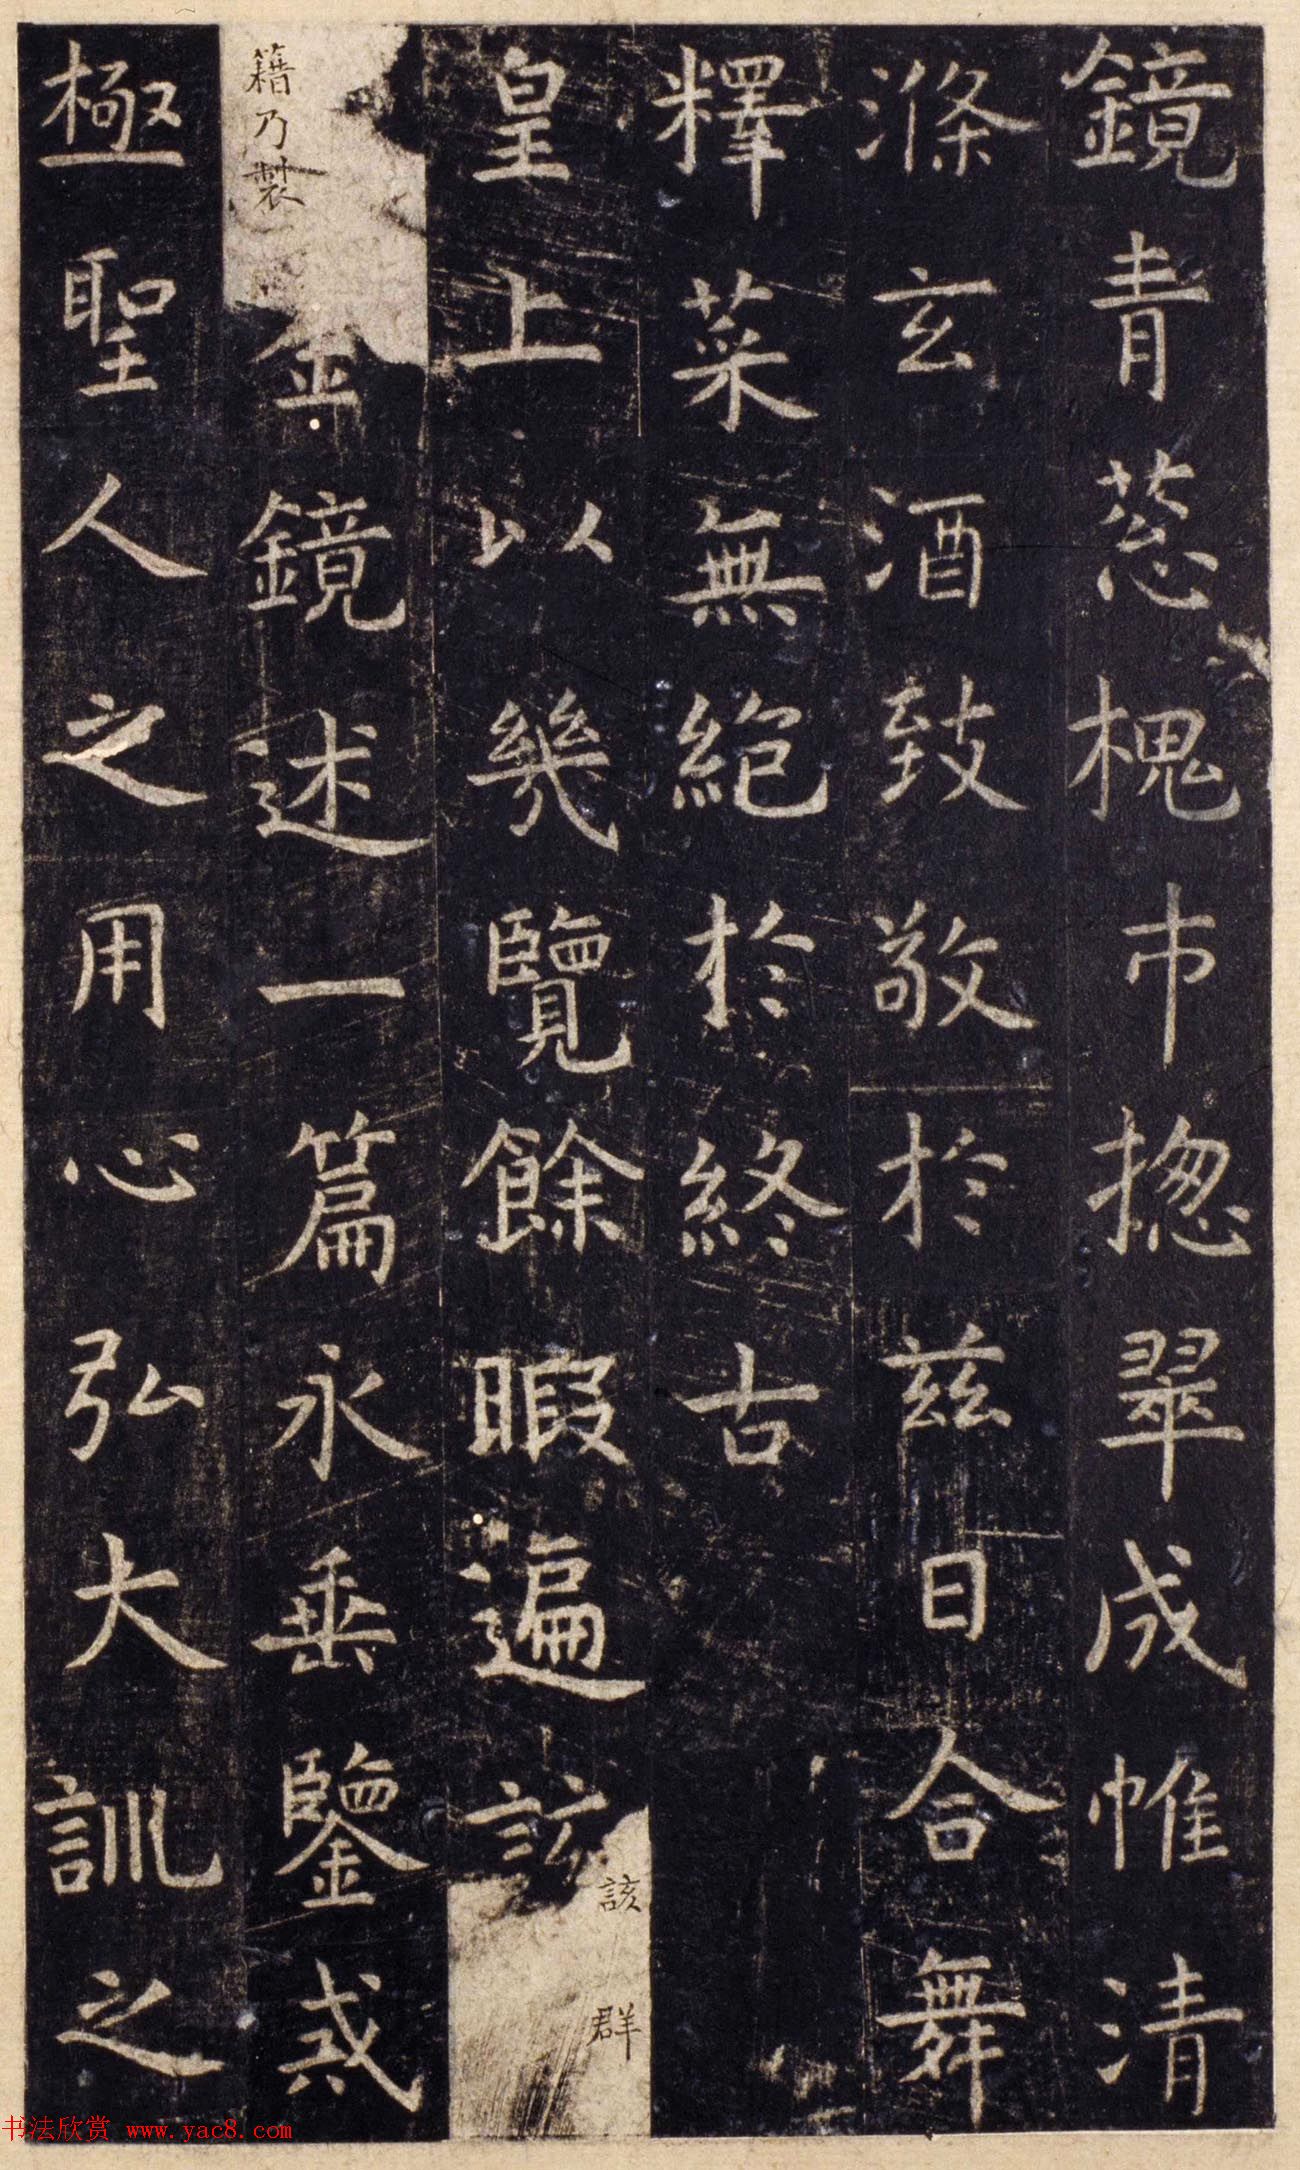 鏡青蔥槐市揔翠成帷清
滌玄酒致敬於茲日合舞
釋菜無絶於終古
皇上以幾覽餘暇遍該
該群
籍乃製
金鏡述一篇永垂鑒戒
極聖人之用心弘大訓之
书法欣赏 www.yac8.com